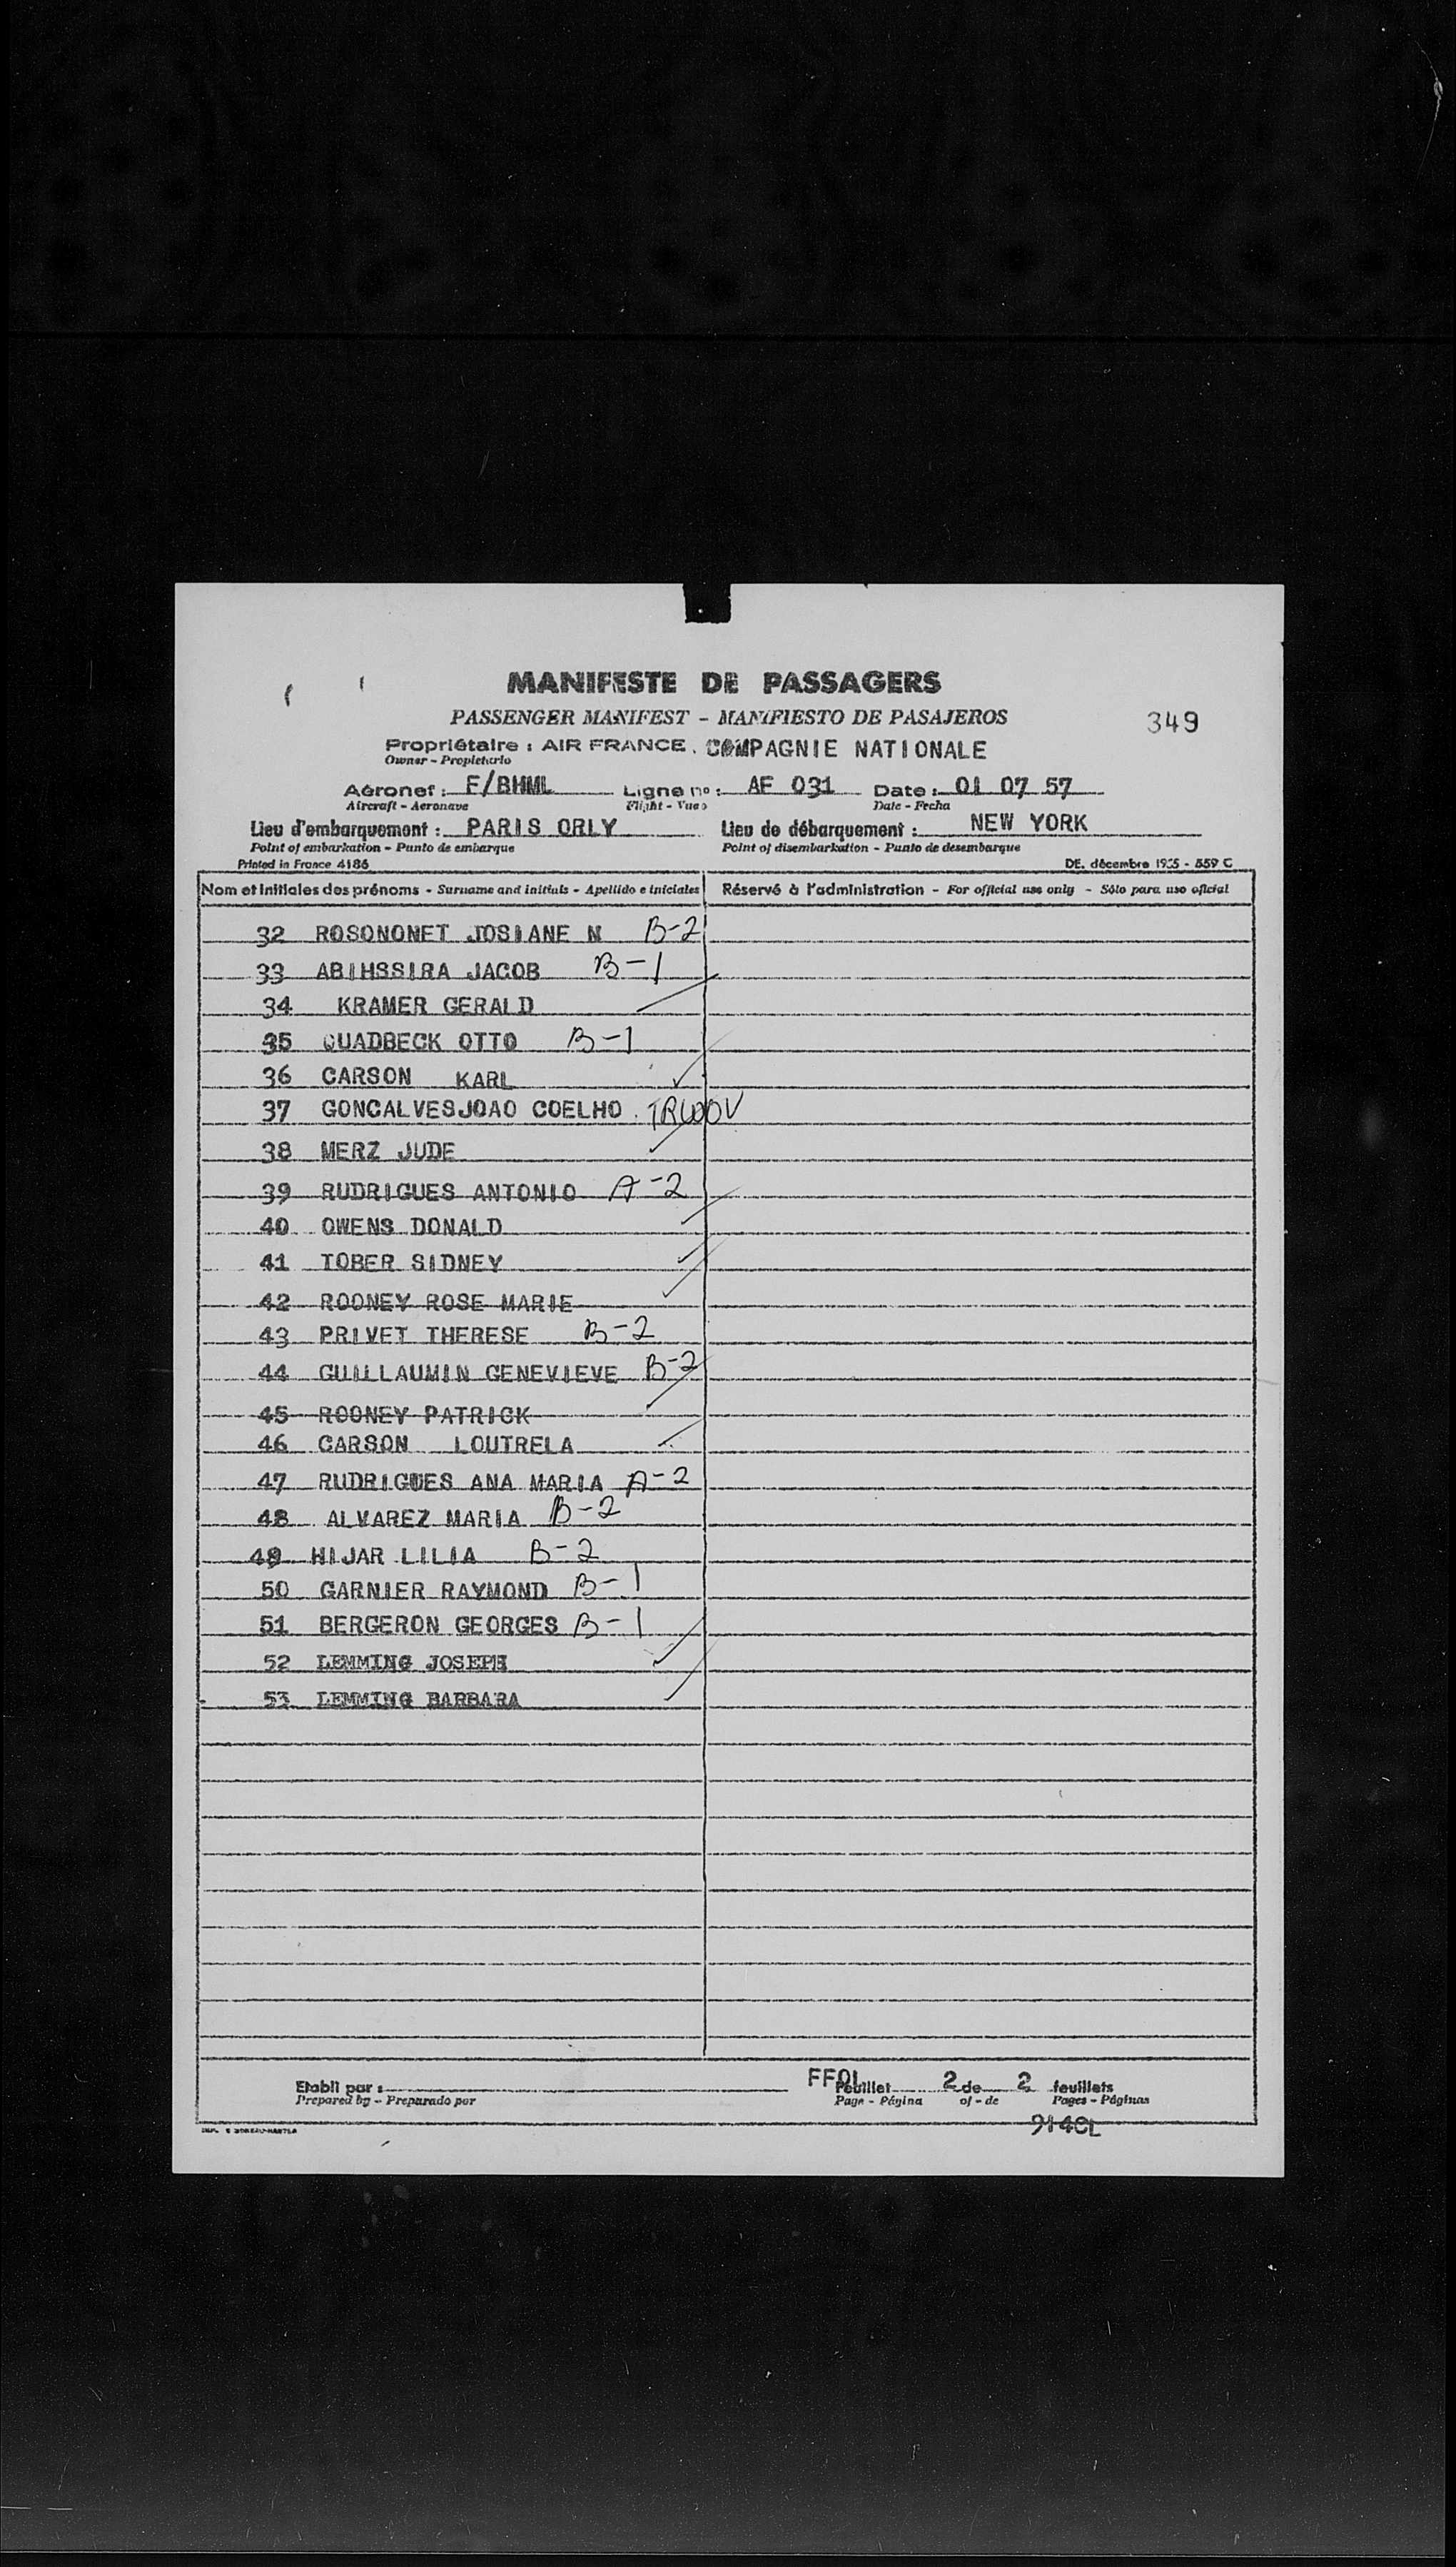 MANIFESTE DE PASSAGERS
PASSENGER MANIFEST - MANIFIESTO DE PASAJEROS
349
Propriétaire : AIR FRANCE. COMPAGNIE NATIONALE
Owner - Propietario
Aéronef : F/BHML Ligne no : AF 031 Date : 01 07 57
Aircraft - Aeronave Flight - Vuelo Date - Fecha
Lieu d'embarquement : PARIS ORLY Lieu de débarquement : NEW YORK
Point of embarkation - Punto de embarque Point of disembarkation - Punto de desembarque
Printed in France 4186 DE. décembre 1955 - 559 C
Nom et initiales des prénoms - Surname and initials - Apellido e iniciales Réservé à l'administration - For official use only - Sólo para uso oficial
32 ROSONONET JOSIANE N B-2
33 ABIHSSIRA JACOB B-1
34 KRAMER GERALD
35 QUADBECK OTTO B-1
36 CARSON KARL
37 GONCALVESJOAO COELHO TRWOV
38 MERZ JUDE
39 RUDRIGUES ANTONIO A-2
40 OWENS DONALD
41 TOBER SIDNEY
42 ROONEY ROSE MARIE
43 PRIVET THERESE B-2
44 GUILLAUMIN GENEVIEVE B-2
45 ROONEY PATRICK
46 CARSON LOUTRELA
47 RUDRIGUES ANA MARIA A-2
48 ALVAREZ MARIA B-2
49 HIJAR LILIA B-2
50 GARNIER RAYMOND B-1
51 BERGERON GEORGES B-1
52 LEMMING JOSEPH
53 LEMMING BARBARA
Etabli par : FFOL Feuillet 2 de 2 feuillets
Prepared by - Preparado por Page - Página of - de Pages - Páginas
914CL